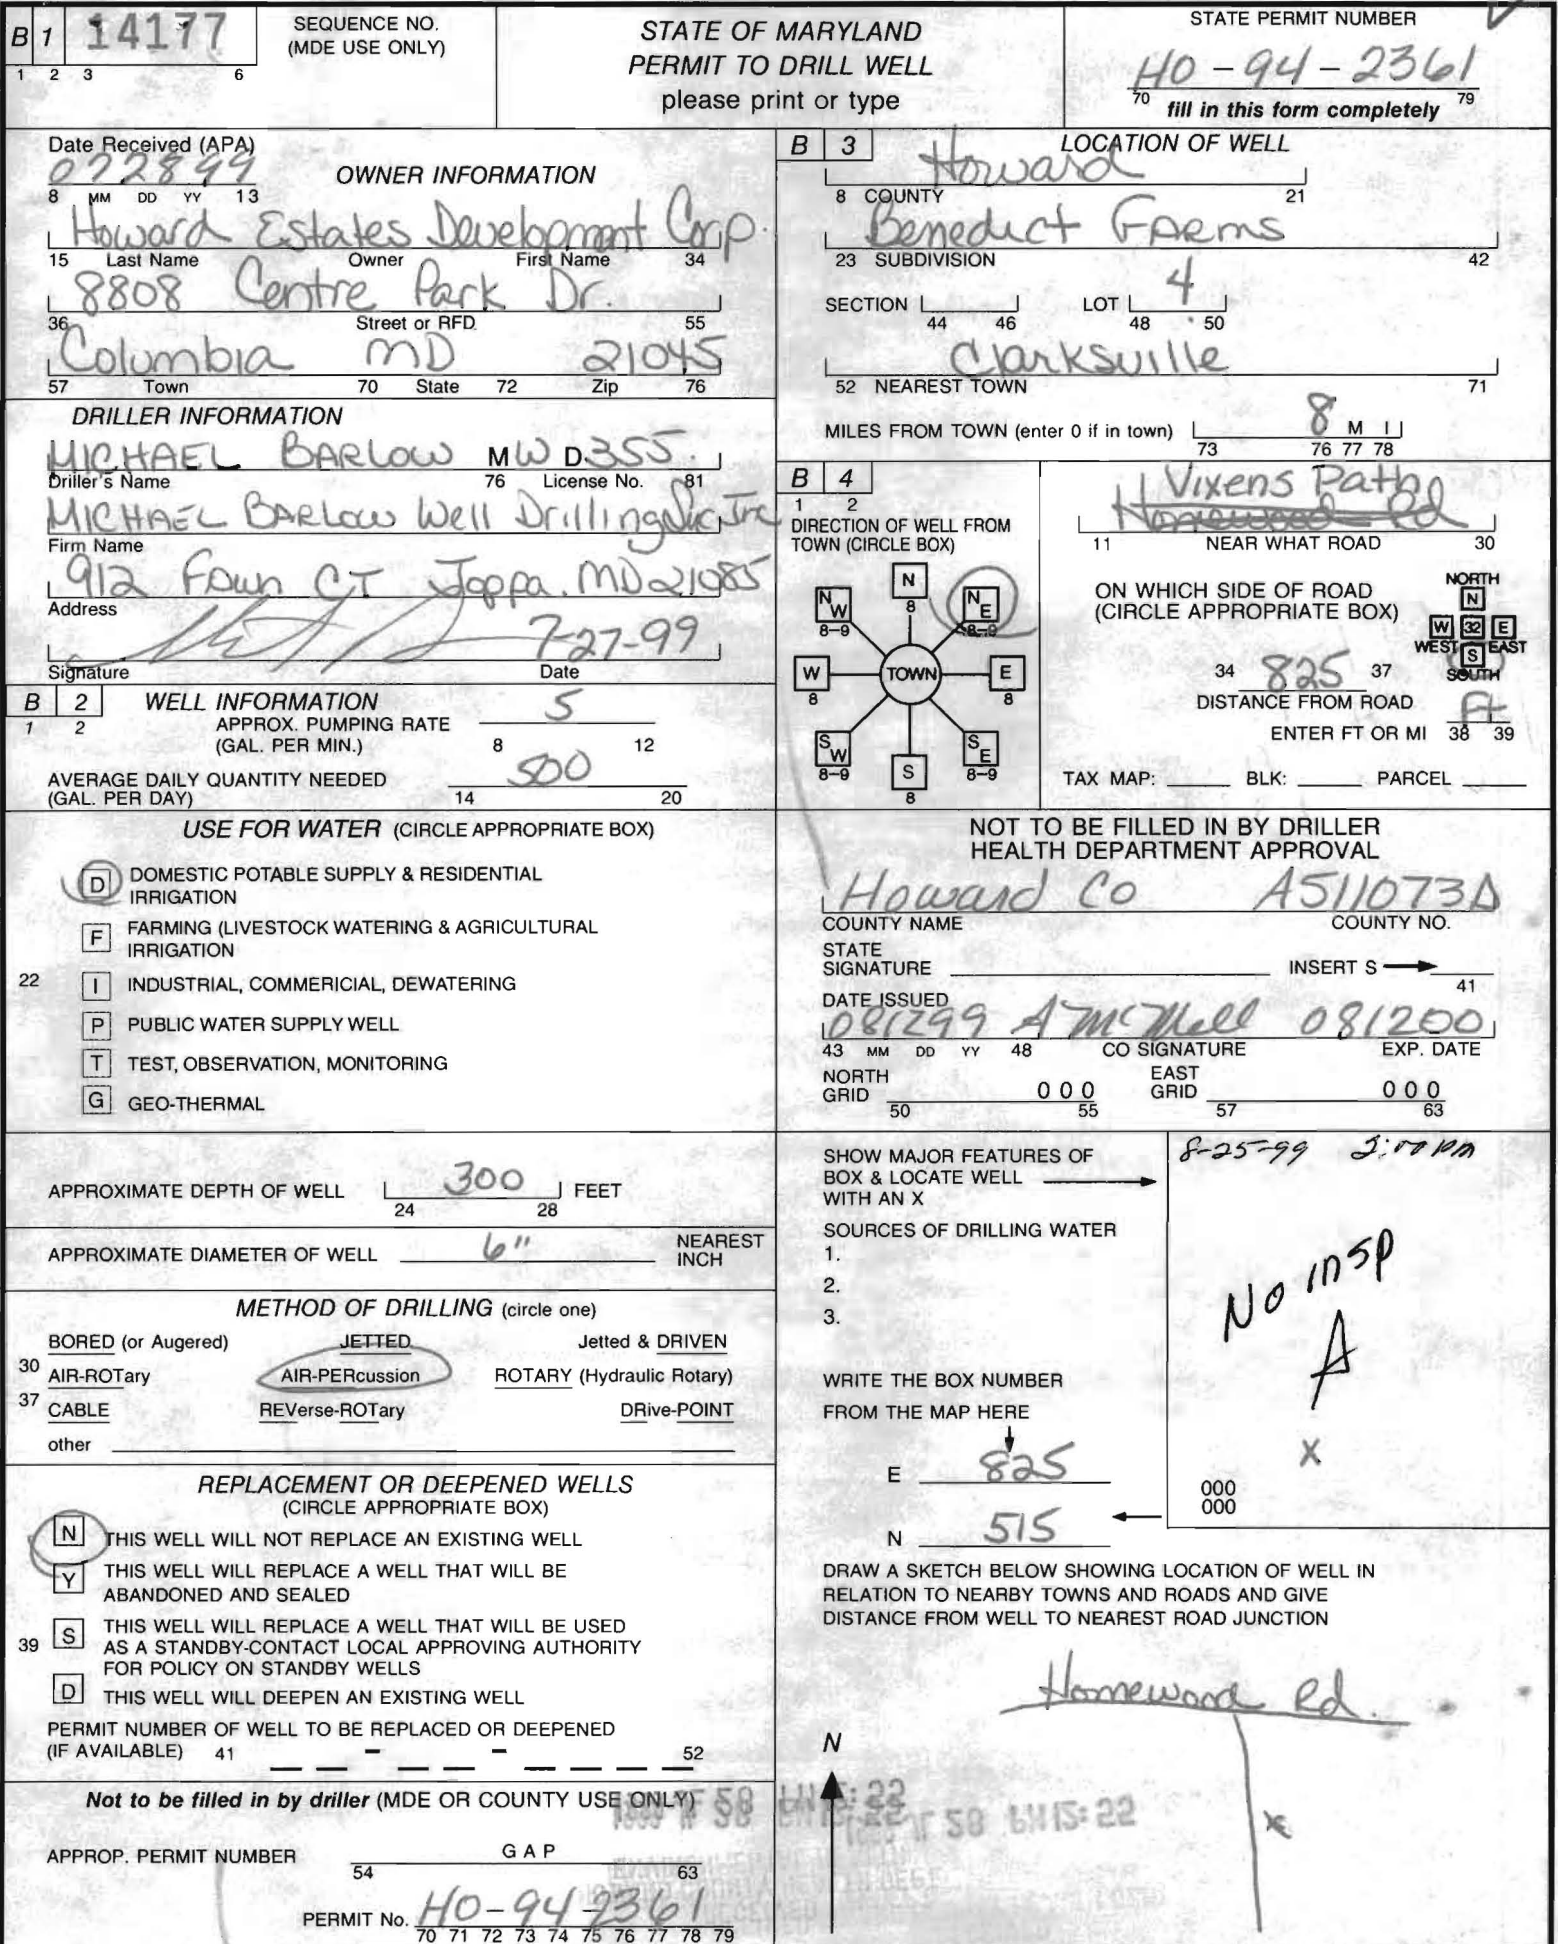 B 1 14177
1 2 3 6
SEQUENCE NO.
(MDE USE ONLY)
STATE OF MARYLAND
PERMIT TO DRILL WELL
please print or type
STATE PERMIT NUMBER
HO-94-2361
70 79
fill in this form completely
Date Received (APA)
072899
8 MM DD YY 13
OWNER INFORMATION
Howard Estates Development Corp.
15 Last Name Owner First Name 34
8808 Centre Park Dr.
36 Street or RFD 55
Columbia MD 21045
57 Town 70 State 72 Zip 76
DRILLER INFORMATION
MICHAEL BARLOW MWD355
Driller's Name 76 License No. 81
MICHAEL BARLOW Well Drilling Svc Inc
Firm Name
912 Fawn CT Joppa. MD 21085
Address
7-27-99
Signature Date
B 2 WELL INFORMATION
1 2
APPROX. PUMPING RATE 5
(GAL. PER MIN.) 8 12
AVERAGE DAILY QUANTITY NEEDED 500
(GAL. PER DAY) 14 20
USE FOR WATER (CIRCLE APPROPRIATE BOX)
D DOMESTIC POTABLE SUPPLY & RESIDENTIAL
IRRIGATION
F FARMING (LIVESTOCK WATERING & AGRICULTURAL
IRRIGATION
22 I INDUSTRIAL, COMMERICIAL, DEWATERING
P PUBLIC WATER SUPPLY WELL
T TEST, OBSERVATION, MONITORING
G GEO-THERMAL
APPROXIMATE DEPTH OF WELL 300 FEET
24 28
APPROXIMATE DIAMETER OF WELL 6" NEAREST
INCH
METHOD OF DRILLING (circle one)
BORED (or Augered) JETTED Jetted & DRIVEN
30 AIR-ROTary AIR-PERcussion ROTARY (Hydraulic Rotary)
37 CABLE REVerse-ROTary DRive-POINT
other
REPLACEMENT OR DEEPENED WELLS
(CIRCLE APPROPRIATE BOX)
N THIS WELL WILL NOT REPLACE AN EXISTING WELL
Y THIS WELL WILL REPLACE A WELL THAT WILL BE
ABANDONED AND SEALED
39 S THIS WELL WILL REPLACE A WELL THAT WILL BE USED
AS A STANDBY-CONTACT LOCAL APPROVING AUTHORITY
FOR POLICY ON STANDBY WELLS
D THIS WELL WILL DEEPEN AN EXISTING WELL
PERMIT NUMBER OF WELL TO BE REPLACED OR DEEPENED
(IF AVAILABLE) 41 - - 52
Not to be filled in by driller (MDE OR COUNTY USE ONLY)
APPROP. PERMIT NUMBER G A P
54 63
PERMIT No. HO-94-2361
70 71 72 73 74 75 76 77 78 79
B 3 LOCATION OF WELL
Howard
8 COUNTY 21
Benedict Farms
23 SUBDIVISION 42
SECTION LOT 4
44 46 48 50
Clarksville
52 NEAREST TOWN 71
MILES FROM TOWN (enter 0 if in town) 8 M I
73 76 77 78
B 4
1 2
DIRECTION OF WELL FROM
TOWN (CIRCLE BOX)
N
8
NW
8-9
NE
8-9
W
8
TOWN
E
8
SW
8-9
S
8
SE
8-9
Vixens Path
Homewood Rd
11 NEAR WHAT ROAD 30
ON WHICH SIDE OF ROAD
(CIRCLE APPROPRIATE BOX)
NORTH
N
W 32 E
WEST S EAST
SOUTH
34 825 37
DISTANCE FROM ROAD
Ft
ENTER FT OR MI 38 39
TAX MAP: BLK: PARCEL
NOT TO BE FILLED IN BY DRILLER
HEALTH DEPARTMENT APPROVAL
Howard Co A511073A
COUNTY NAME COUNTY NO.
STATE
SIGNATURE INSERT S
41
DATE ISSUED
081299 A McMell 081200
43 MM DD YY 48 CO SIGNATURE EXP. DATE
NORTH
GRID 0 0 0
50 55
EAST
GRID 0 0 0
57 63
SHOW MAJOR FEATURES OF
BOX & LOCATE WELL
WITH AN X
SOURCES OF DRILLING WATER
1.
2.
3.
8-25-99 2:00 pm
No insp
A
X
000
000
WRITE THE BOX NUMBER
FROM THE MAP HERE
E 825
N 515
DRAW A SKETCH BELOW SHOWING LOCATION OF WELL IN
RELATION TO NEARBY TOWNS AND ROADS AND GIVE
DISTANCE FROM WELL TO NEAREST ROAD JUNCTION
Homewood Rd.
N
x